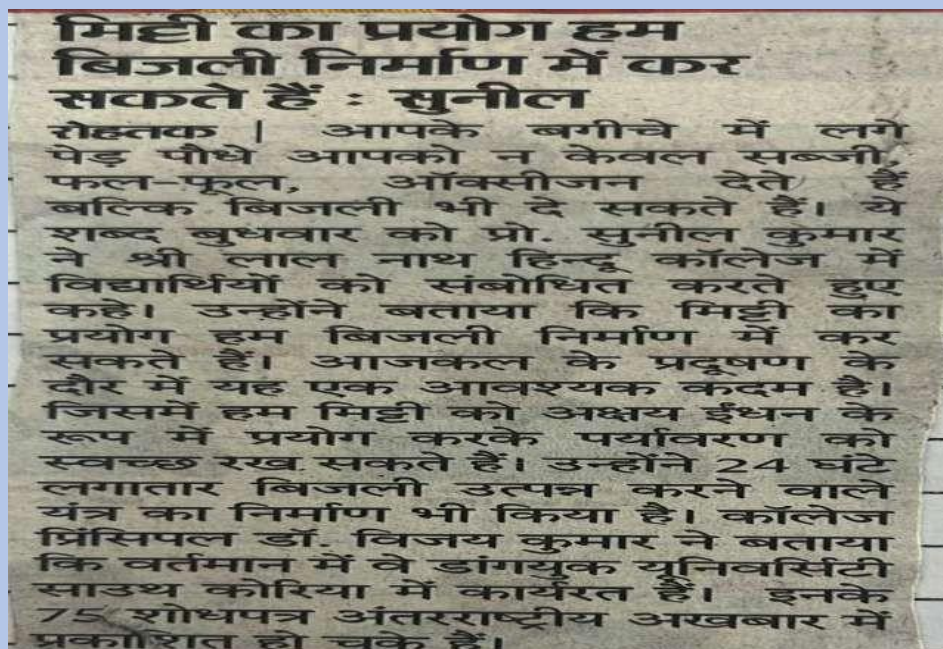 मिट्टी का प्रयोग हम
बिजली निर्माण में कर
सकते हैं : सुनील
रोहतक | आपके बगीचे में लगे
पेड़ पौधे आपको न केवल सब्जी,
फल-फूल, ऑक्सीजन देते हैं
बल्कि बिजली भी दे सकते हैं। ये
शब्द बुधवार को प्रो. सुनील कुमार
ने श्री लाल नाथ हिन्दू कॉलेज में
विद्यार्थियों को संबोधित करते हुए
कहे। उन्होंने बताया कि मिट्टी का
प्रयोग हम बिजली निर्माण में कर
सकते हैं। आजकल के प्रदूषण के
दौर में यह एक आवश्यक कदम है।
जिसमें हम मिट्टी को अक्षय ईंधन के
रूप में प्रयोग करके पर्यावरण को
स्वच्छ रख सकते हैं। उन्होंने 24 घंटे
लगातार बिजली उत्पन्न करने वाले
यंत्र का निर्माण भी किया है। कॉलेज
प्रिंसिपल डॉ. विजय कुमार ने बताया
कि वर्तमान में वे डांगयुक यूनिवर्सिटी
साउथ कोरिया में कार्यरत हैं। इनके
75 शोधपत्र अंतरराष्ट्रीय अखबार में
प्रकाशित हो चुके हैं।